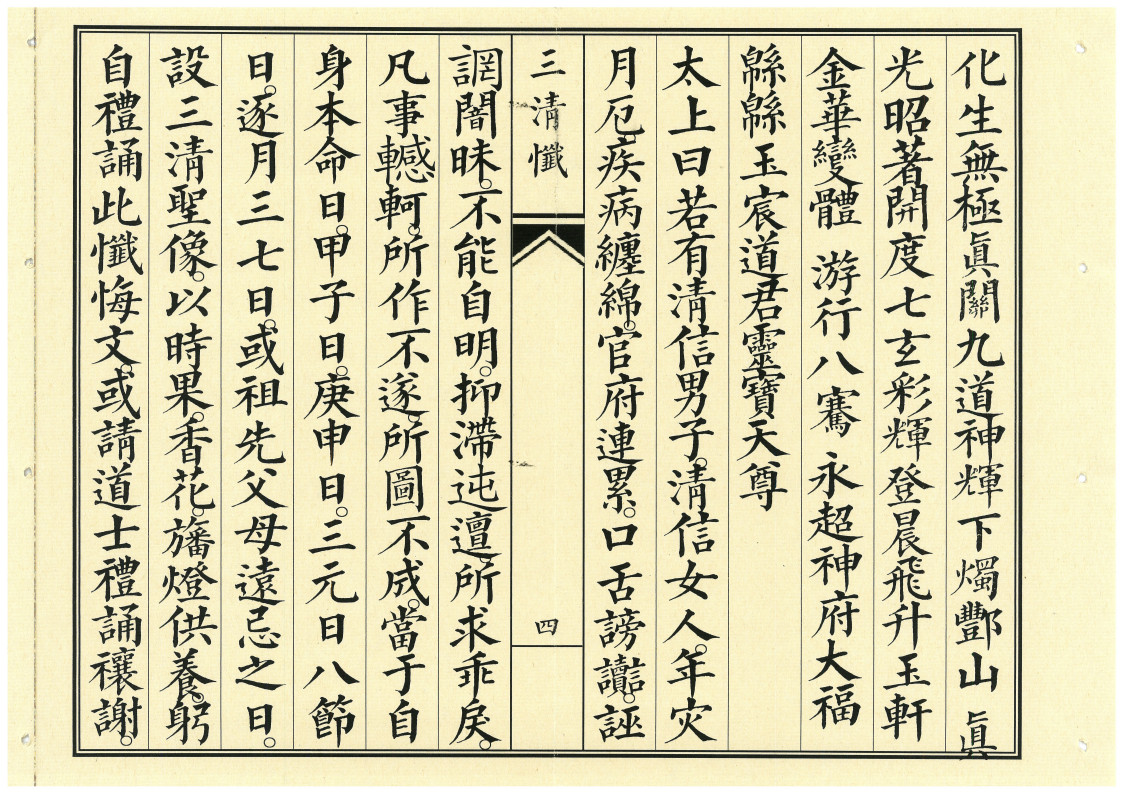 化生無極眞關九道神輝下燭酆山 眞
光昭著開度七玄彩輝登晨飛升玉軒
金華變體 游行八騫 永超神府大福
緜緜玉宸道君靈寶天尊
太上曰若有淸信男子。淸信女人。年災
月厄。疾病纏綿。官府連累。口舌謗讟。誣
三淸懺
四
調闇昧。不能自明。抑滯迍邅。所求乖戾。
凡事轗軻。所作不遂。所圖不成。當于自
身本命日。甲子日。庚申日。三元日八節
日。逐月三七日。或祖先父母遠忌之日。
設三淸聖像。以時果。香花。旛燈供養。躬
自禮誦此懺悔文。或請道士禮誦禳謝。